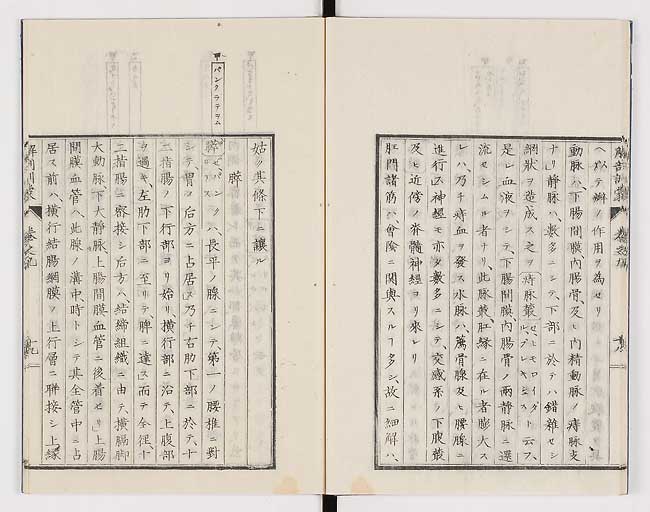 ヘ以テ辧ノ作用ヲ為セリ
動脈ハ、下腸間膜、内腸骨、及ヒ内精動脈ノ痔脈支
ナリ静脈ハ、數多ニシテ、下部ニ於テハ錯雜セシ
網狀ヲ造成ス之ヲ痔脈叢ト云フ、
是レ血液ヲシテ、下腸間膜、内腸骨ノ兩静脈ニ還
流セシムル者ナリ、此脈叢、肛緣ニ在ル者膨大ス
レハ乃チ痔血ヲ發ス水脈ハ、薦骨腺及ヒ腰腺ニ
進行ス神経モ亦タ數多ニシテ、交感系ノ下腹叢
及ヒ近傍ノ脊髓神經ヨリ來レリ
肛門諸筋ハ、會陰ニ関與スルヿ多シ、故ニ細解ハ、
姑ク其條下ニ讓ル
脺
脺ハ、長平ノ腺ニシテ、第一ノ腰椎ニ對
シテ胃ノ后方ニ占居ス乃チ右肋下部ニ於テ、十
二指腸ノ下行部ヨリ始リ、横行部ニ沿テ、上腹部
ヲ過キ、左肋下部ニ至リテ脾ニ達ス而テ全徑十
二指腸ニ密接シ后方ハ、結締組織ニ由テ、横膈脚
大動脈下大静脈上腸間膜血管ニ後着セリ上腸
間膜血管ハ、此腺ノ溝中時トシテ其全管中ニ占
居ス前ハ、横行結腸網膜ノ上行層ニ聯接シ上緣
パンクラテヲム